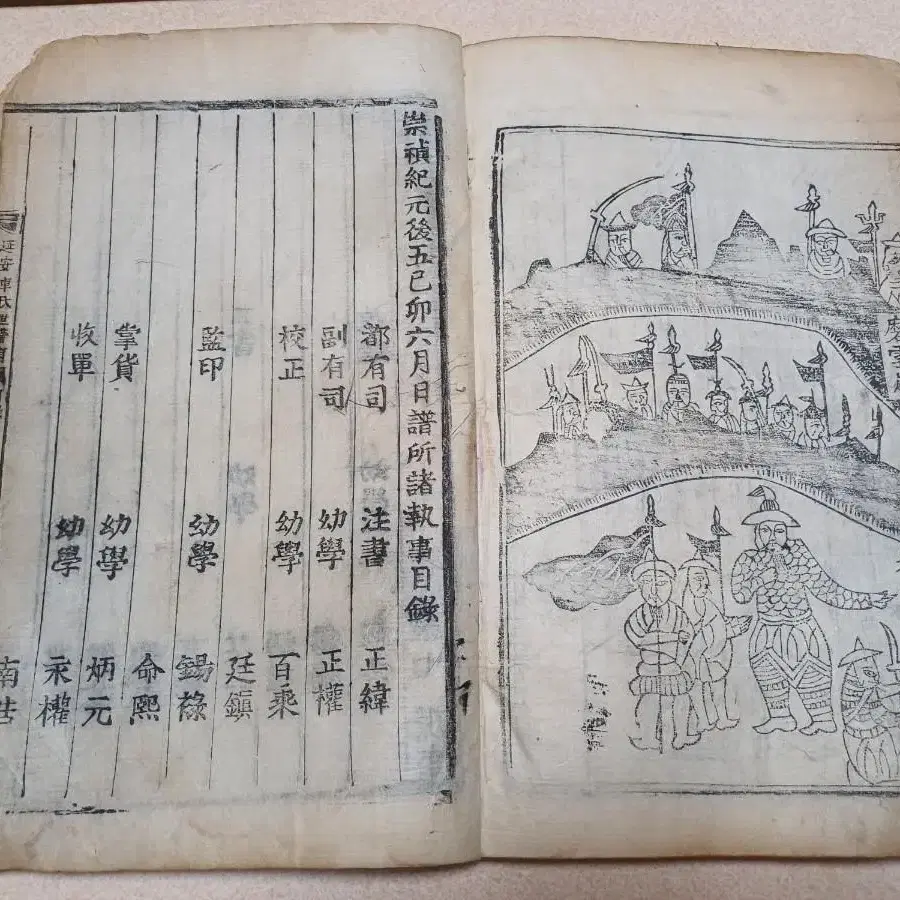 崇禎紀元後五己卯六月日譜所諸執事目錄
都有司 注書 正緯
副有司 幼學 正權
校正 幼學 百乘
廷鎭
監印 幼學 錫祿
命熙
掌貨 幼學 炳元
收單 幼學 永權
南
延安車氏